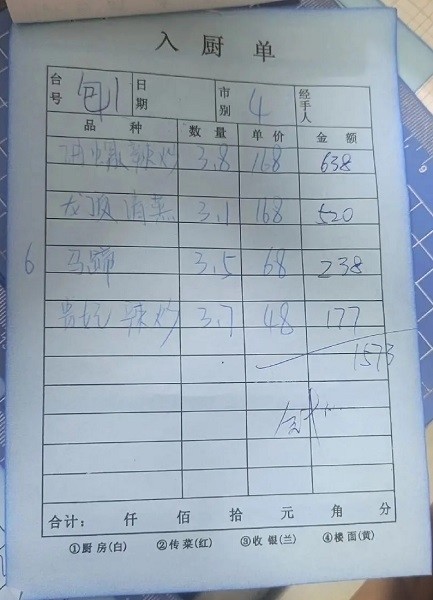 入厨单
台号 包1 日期 市别 4 经手人
品种 数量 单价 金额
辣炒 3.8 168 638
龙虾 清蒸 3.1 168 520
6 马蹄 3.5 68 238
辣炒 3.7 48 177
1573
合计: 仟 佰 拾 元 角 分
①厨房(白) ②传菜(红) ③收银(兰) ④楼面(黄)